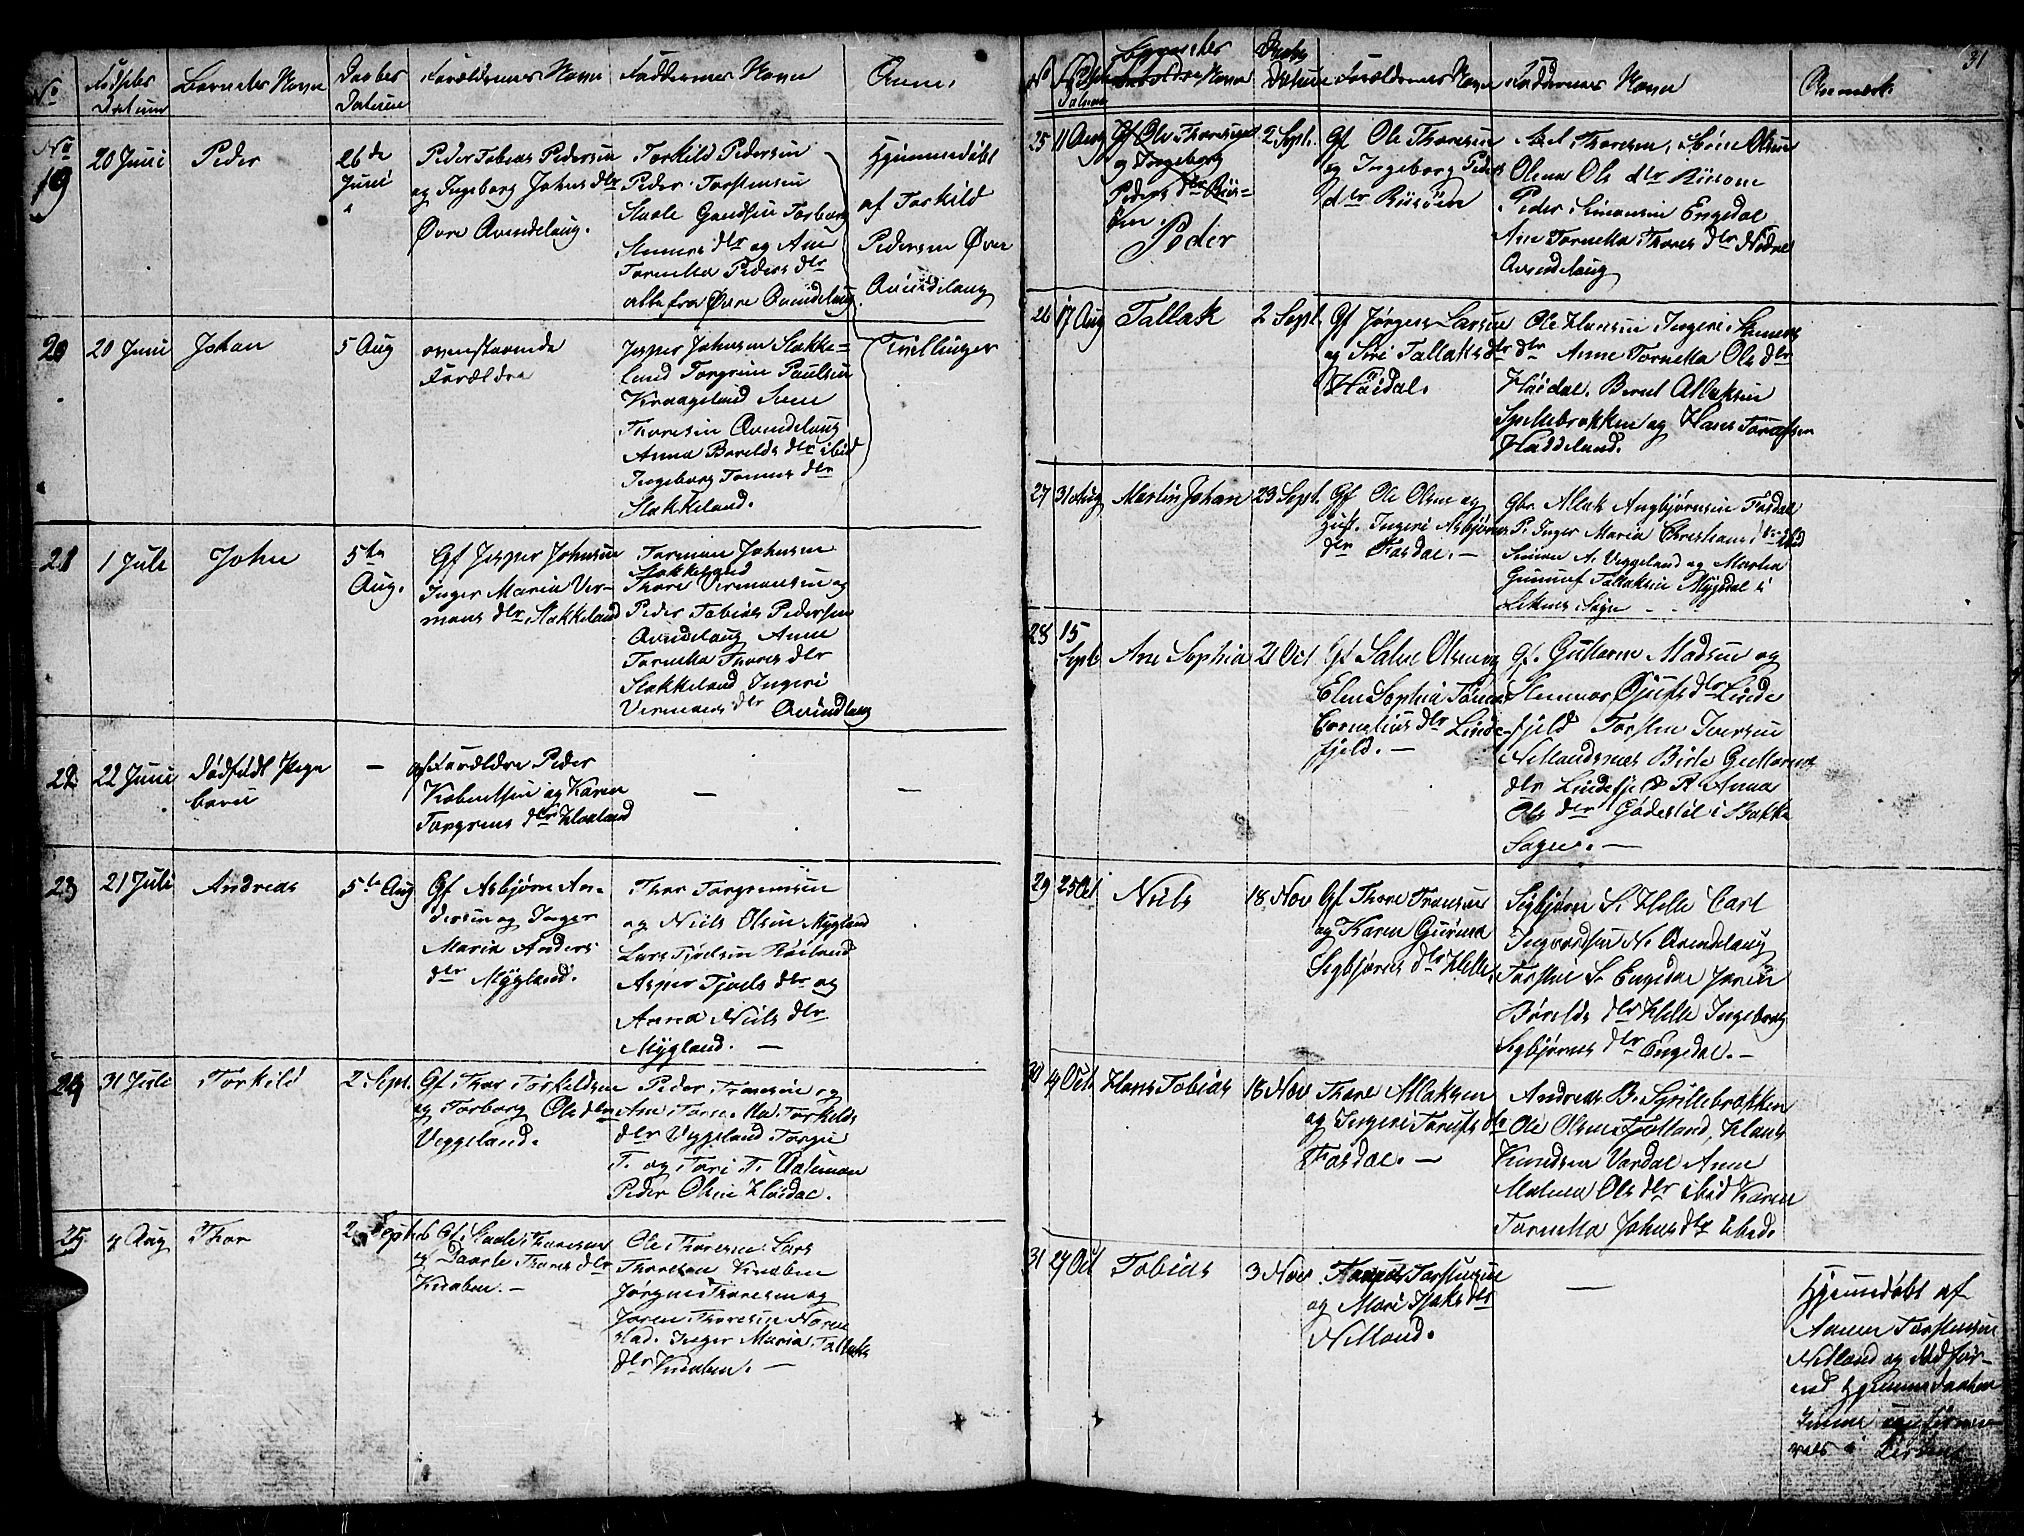 No
Fødsels
Datum
Barnets Navn
Daabs
Datum
Forældrenes Navn
Faddernes Navn
Anm.
No
19
20 Juni
Peder
26de
Juni
Peder Tobias Pedersen
og Ingeborg Johns dlr
Øvre Avendelaug.
Torkild Pedersen
Peder Torstensen
Staale Gundsen Torborg
dlr og Ane
Tornetta Peders dlr
alle fra Øvre Avendelaug
Hjemmedøbt
af Torkild
Pedersen Øvre
Avindelaug
20
20 Juni
Johan
5 Aug
ovenstaaende
Forældre
Jesper Johnsen Stakke-
land Torgrim Paulsen
Kraageland Sven
Thoresen Avendelaug
Anna Bareldsdlr ibid
Ingeborg Tommesdlr
Stakkeland.
Tvillinger
21
1 Juli
John
5te
Aug.
Gf Jesper Johnsen
Inger Maria Ver-
mons dlr Stakkeland
Tormon Johnsen
Stakkeland
Thore Vermonsen og
Peder Tobias Pedersen
Avindelaug Anne
Tornetta Thores dlr
Stakkeland Ingeri
Vermons dlr Avindlaug
22
22 Juni
Dødfødt Pige
barn
—
af Forældre Peder
og Karen
Torgrens dlr Hboeland
—
—
23
21 Juli
Andreas
5te Aug
Gf Asbjørn An-
dersen og Inger
Maria Anders
dlr Mygland.
Thor Torgremsen
og Niels Olsen Mygland
Lars Tjodsen Røiland
Asper Tjods dlr og
Anna Niels dlr
Mygland. —
24
31 Juli
Torkild
2 Sept.
Gf Thor Torkildsen
og Torborg Ols dlr
Veggeland.
Peder Thoresen og
Ane Tornetta Torkilds
dlr Veggeland. Torger
T. og Tori T.
Peder Olsen Høidal.
25
4 Aug
Thor
2 Septb
Gf. Staale Thoresen
og Daarte Thores dlr
Knaben. —
Ole Thoresen Lars
Thoresen Knaben
Jørgen Thoresen og
Joren Thoresen Naren
stad. Inger Maria Tallaks
dlr Knaben. —
31
No
Fødsels
Datum
Barnets
Navn
Daabs
Datum
Forældrenes Navn
Faddernes Navn
Anmærk.
25
11 Aug
Gf Ole Thoresen
og Ingeborg
Peders dlr Riis-
øen
Peder
2 Sept.
Gf Ole Thoresen
og Ingeborg Peders
dlr Risøen
Axel Thoresen, Sørine Olsen
Olena Ols dlr Riisøen
Peder Simonsen Engedal
Ane Tornetta Thores dlr Nedre
Avendelaug
26
17 Aug
Tallak
2 Sept.
Gf Jørgen Larsen
og Siri Tallaks dlr
Høidal.
Ole Hansen Ingeri
dlr Anne Tornetta Ols dlr
Høidal. Bernt Atlaksen
Spillebrokken og Hans
Haddeland.
27
31 Aug
Martin Johan
23 Sept.
Gf Ole Olsen og
Hust. Ingeri Asbjørns
dlr Fosdal. —
Gbr. Atlak Angbjørnsen Fosdal
P. Inger Maria Christians ibid
Simon A. Veggeland og Martha
Gunnuf Tallaksen Mygdal i
Leknes Sogn
28
15
Septb
Ane Sophia
21 Oct
Gf Salve Olsen og
Elen Sophia Tønnes
Cornelius dlr Linde-
fjeld. —
Gf. Guttorm Madsen og
Hennar Gjufs dlr Linde
fjeld Torsten Iversen
Netlandsnes Birte Guttorms
dlr Lindefjeld P. Anna
Ols dlr Gjødestøl i Bakke
Sogn. —
29
25 Oct
Niels
18 Nov
Gf Thore Tronsen
og Karen Gurina
Segbjørns dlr Helle.
Segbjørn S. Helle Carl
Ingvardsen N. Avendelaug
Torstein S. Engedal Joren
Børulds dlr Helle Ingeborg
Segbjørns dlr Engedal. —
30
9 Oct.
Hans Tobias
18 Nov
Thore Atlaksen
og Ingeri Torusf dlr
Fosdal. —
Andreas B. Spillebrokken
Ole Olsen Fjotland, Klaus
Knudsen Vordal Anne
Malena Ols dlr ibid Karen
Tornetta Johns dlr ibid.
31
27 Oct
Tobias
3 Nov
Torstensen
og Mari Isaks dlr
Netland.
—
Hjemmedøbt af
Aanen Torstensen
Netland og
Hjemmedaaben